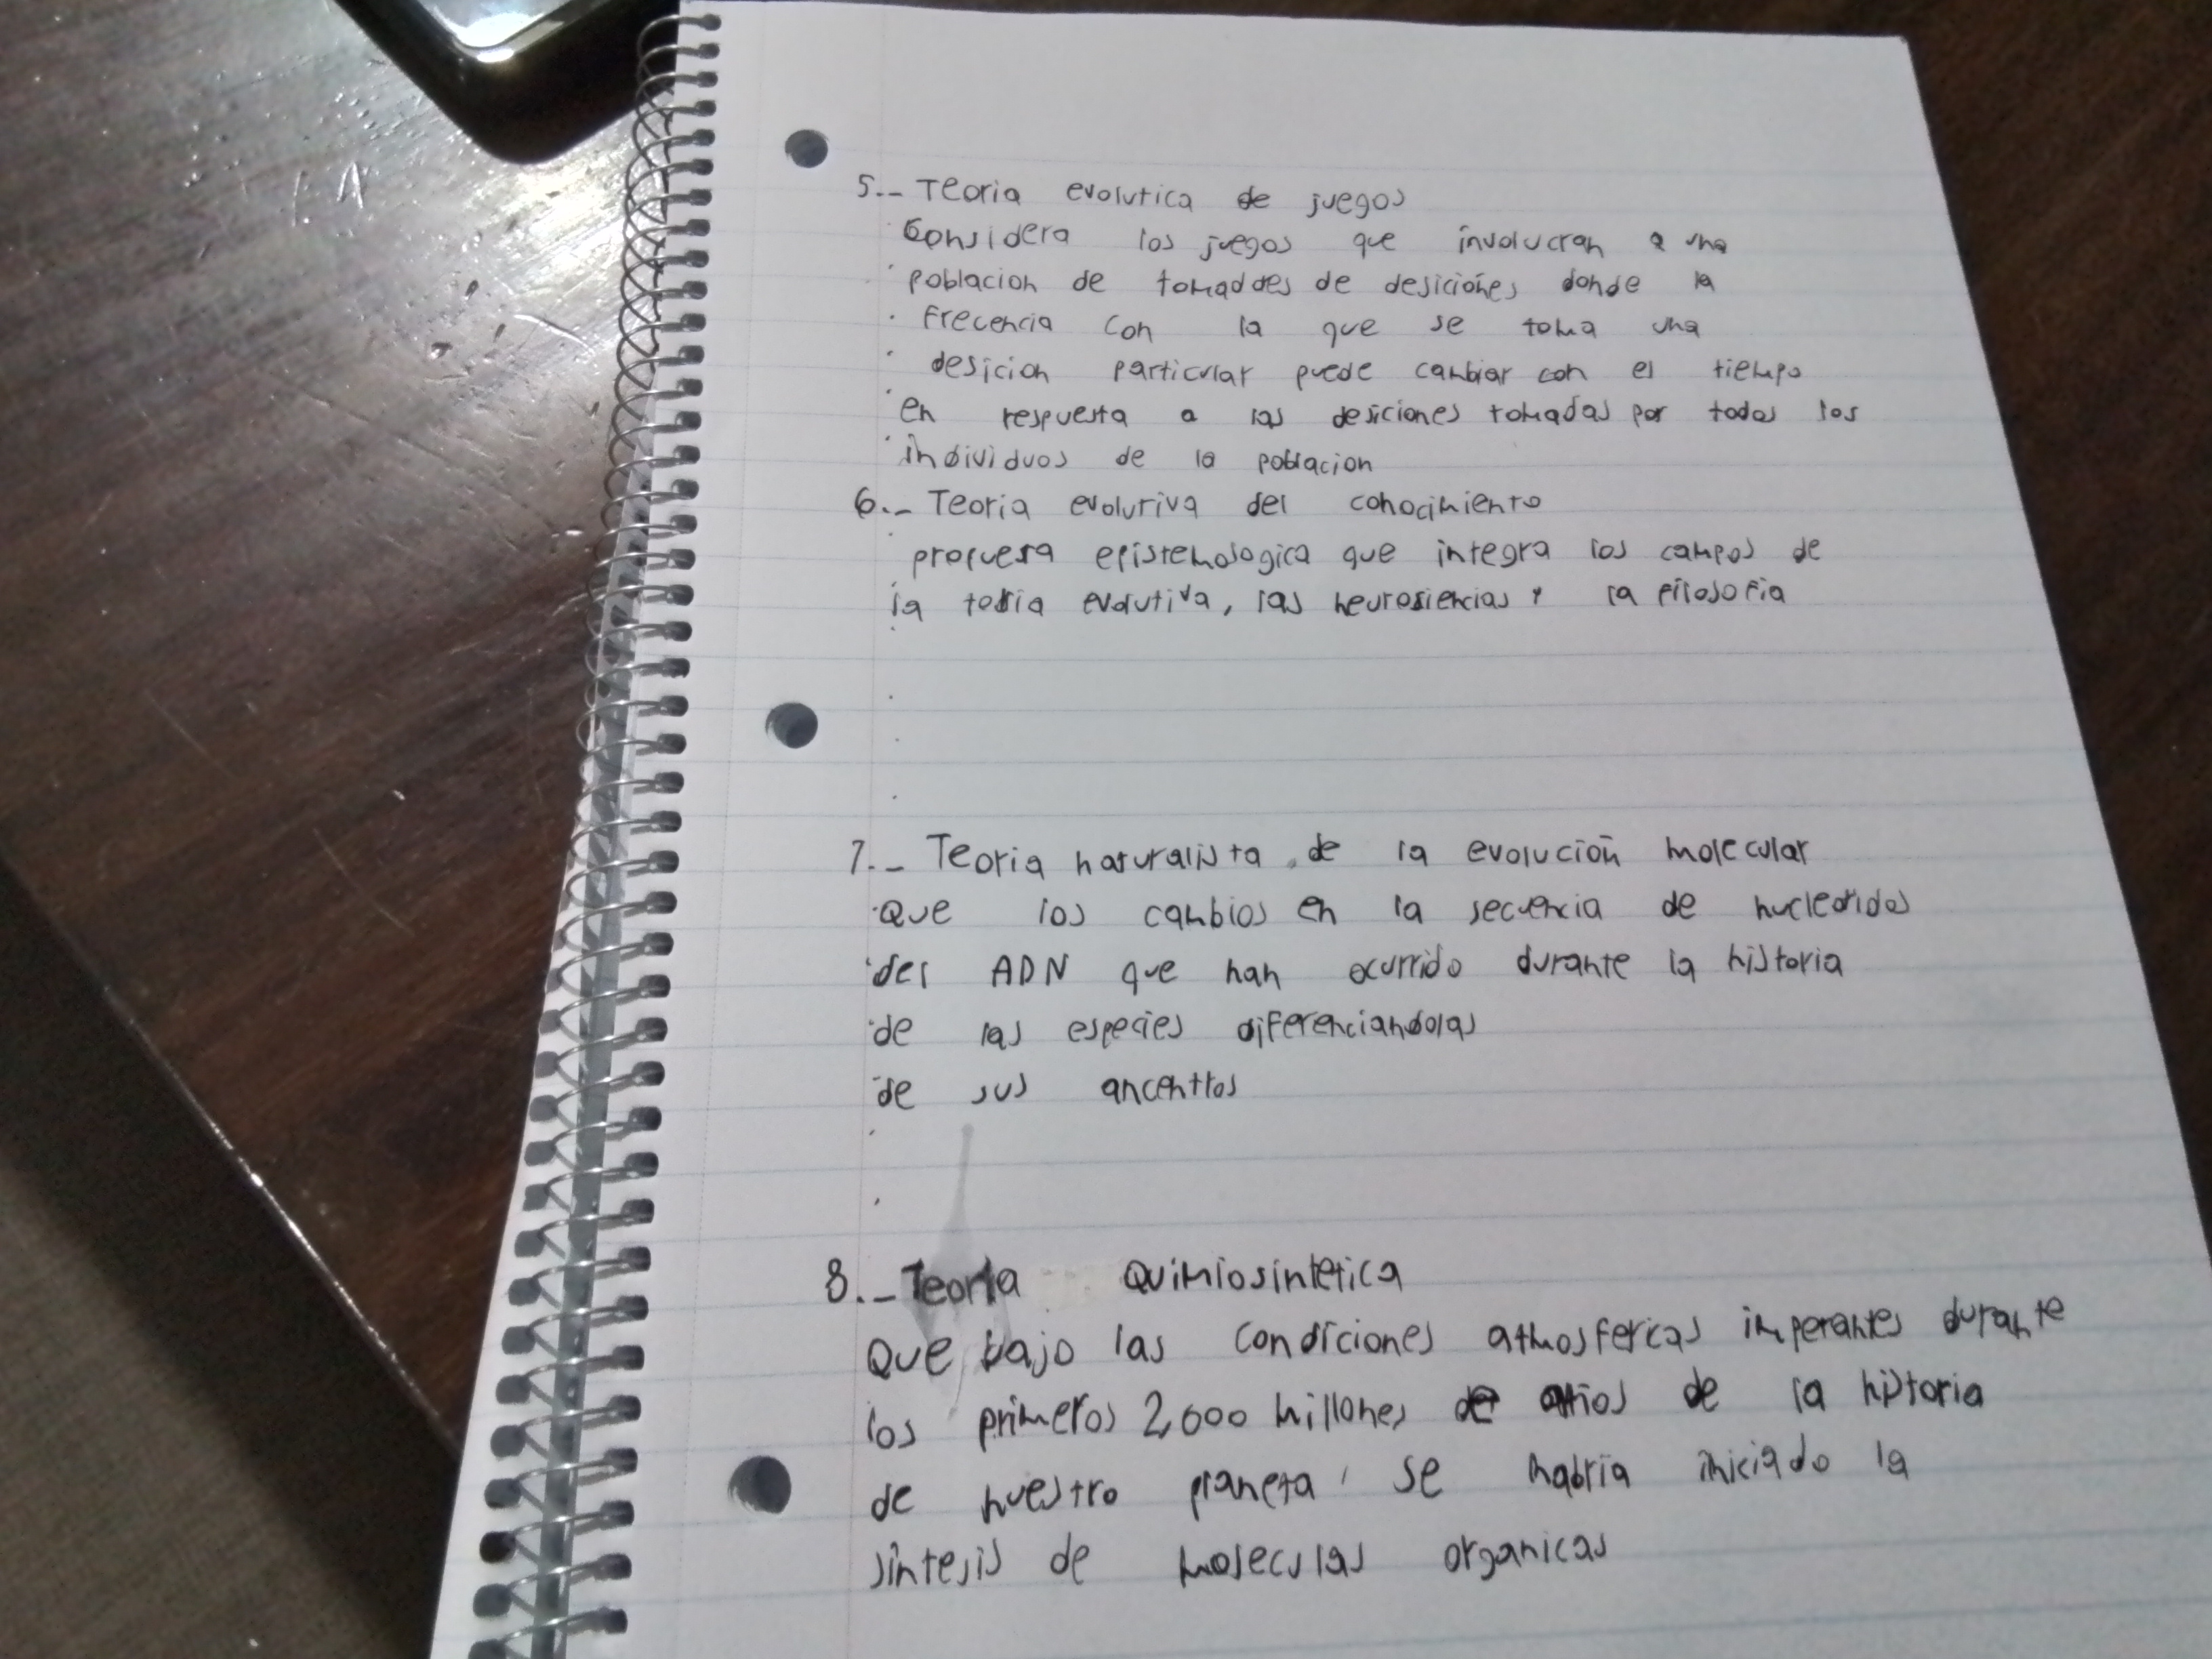 5.- Teoria evolutica de juegos
Considera los juegos que involucran a una
poblacion de tomaddes de desiciónes donde la
frecencia con la que se toma una
desicion particular puede cambiar con el tiempo
en respuesta a las desiciones tomadas por todos los
individuos de la poblacion
6.- Teoria evolutiva del conocimiento
propuesa epistemologica que integra los campos de
la teoria evolutiva, las neurosiencias y la filosofia
7.- Teoria naturalista de la evolución molecular
Que los cambios en la secuencia de nucleotidos
del ADN que han ocurrido durante la historia
de las especies diferenciandolas
de sus ancentros
8.- Teoria Quimiosintetica
Que bajo las condiciones atmosfericas imperantes durante
los primeros 2,000 millones de años de la historia
de nuestro planeta, se habria iniciado la
sintesis de moleculas organicas